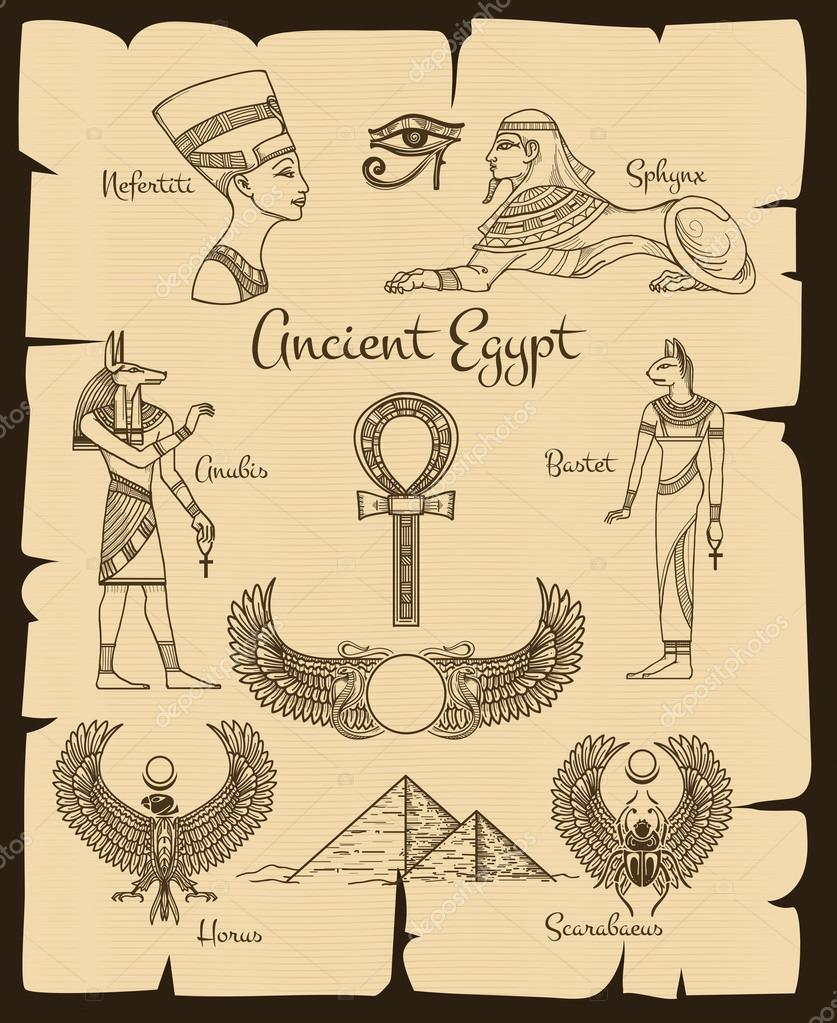 Nefertiti
Sphynx
Ancient Egypt
Anubis
Bastet
Horus
Scarabaeus
depositphotos